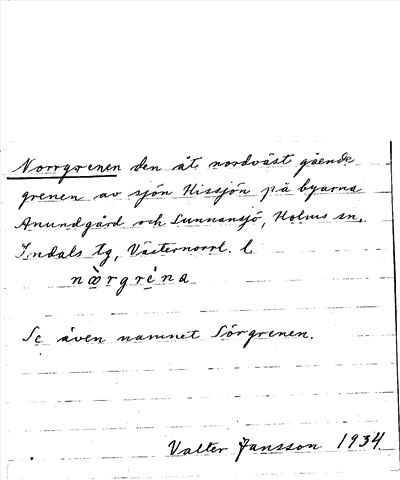 Norrgrenen den åt nordväst gående
grenen av sjön Hissjön på byarna
Anundgård och Sunnansjö, Holms sn,
Indals tg, Västernorrl. l.
nœ̀rgrèna
Se även namnet Sörgrenen.
Valter Jansson 1934